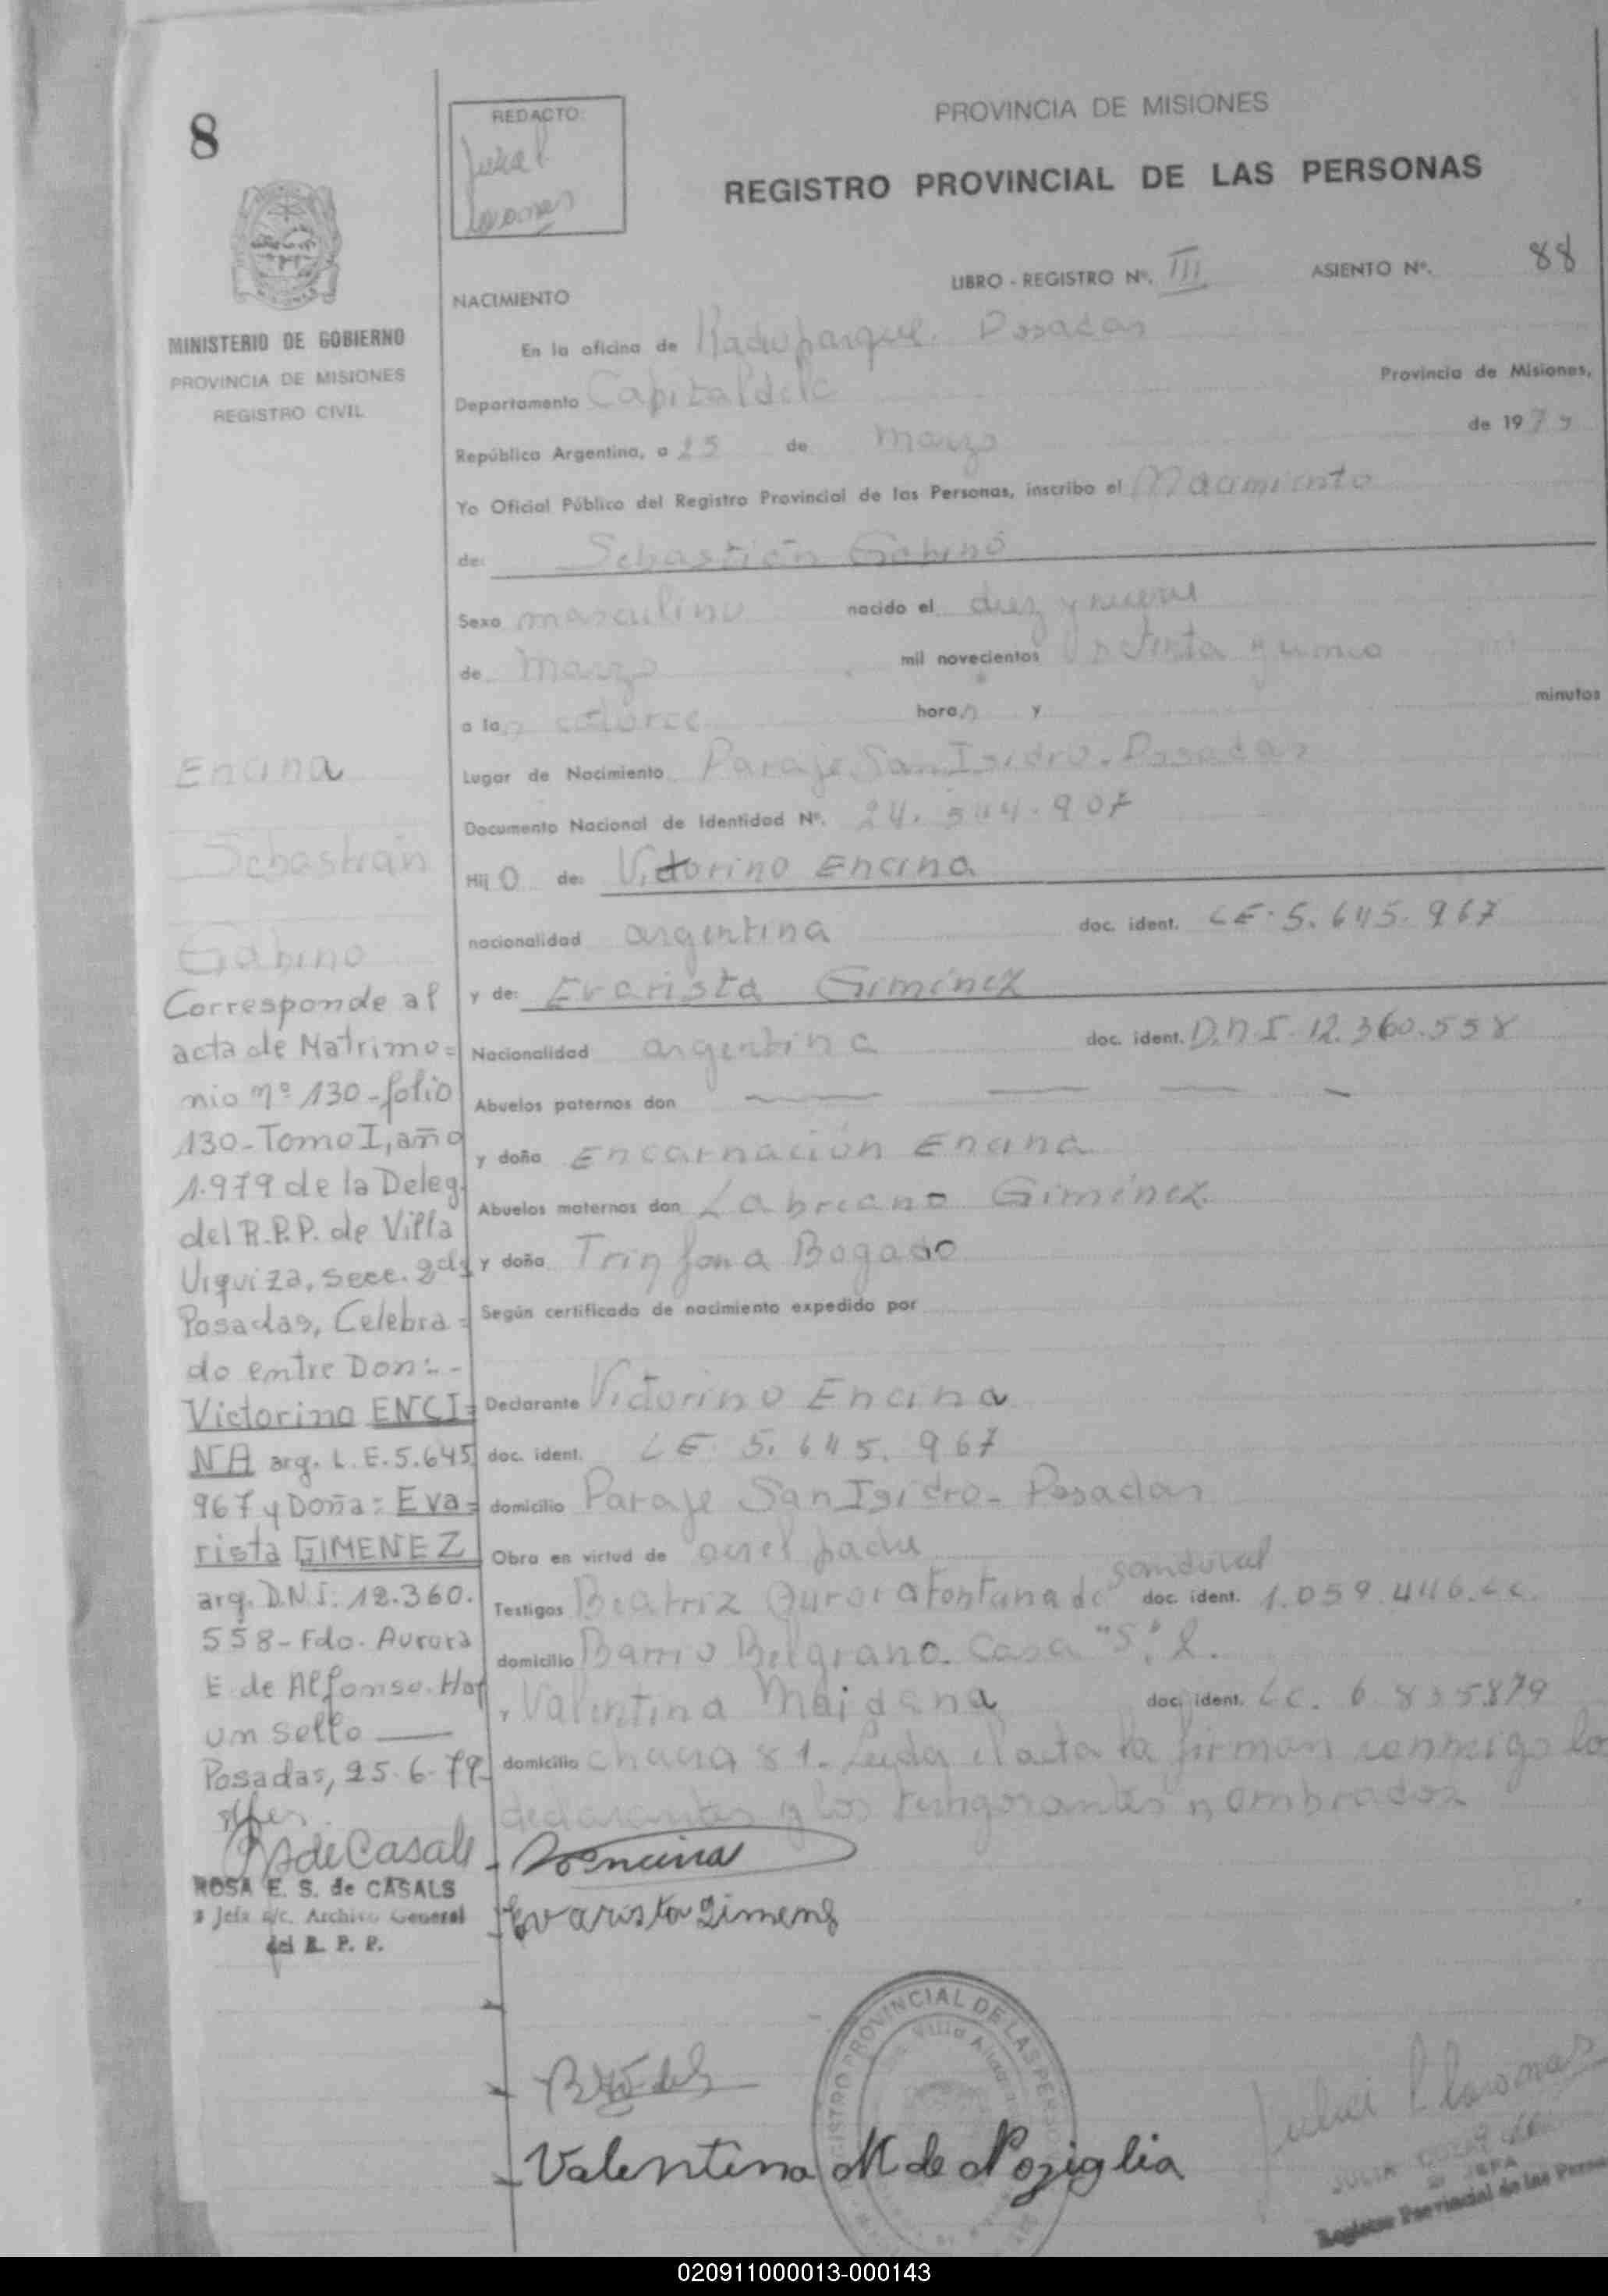 8
REDACTO:
PROVINCIA DE MISIONES
REGISTRO PROVINCIAL DE LAS PERSONAS
LIBRO - REGISTRO Nº. III ASIENTO Nº. 88
NACIMIENTO
MINISTERIO DE GOBIERNO
PROVINCIA DE MISIONES
REGISTRO CIVIL
En la oficina de Posadas
Departamento Capital de la Provincia de Misiones,
República Argentina, a 25 de Marzo de 197
Yo Oficial Público del Registro Provincial de las Personas, inscribo el Nacimiento
de: Sebastián Gabino
Sexo masculino nacido el diez y nueve
de Marzo mil novecientos
a las catorce horas y minutos
Lugar de Nacimiento Paraje San Isidro. Posadas
Documento Nacional de Identidad Nº. 24. 907
Hijo de: Victorino Encina
nacionalidad argentina doc. ident. LE. 5. 645. 967
y de: Evarista Giménez
Nacionalidad argentina doc. ident. D.N.I. 12.360.558
Abuelos paternos don — — — —
y doña Encarnación Encina
Abuelos maternos don Labreano Giménez
y doña Bogado
Según certificado de nacimiento expedido por
Declarante Victorino Encina
doc. ident. LE 5. 645. 967
domicilio Paraje San Isidro - Posadas
Obra en virtud de ser el padre
Testigos Beatriz Aurora Fontana de Sandoval doc. ident. 1.059.446. LC.
domicilio Barrio Belgrano. Casa "S."
y Valentina Maidana doc. ident. LC. 6.835879
domicilio chacra 81. Leida el acta la firman conmigo los
declarantes y los testigos nombrados
Encina
Evarista Gimenez
Valentina M de Noziglia
Encina
Sebastián
Gabino
Corresponde al
acta de Matrimo=
nio nº 130-folio
130-Tomo I, año
1.979 de la Deleg.
del R.P.P. de Villa
Urquiza, Secc. 2da
Posadas, Celebra=
do entre Don:-
Victorino ENCI=
NA arg. L.E.5.645.
967 y Doña: Eva=
rista GIMENEZ
arg. D.N.I: 12.360.
558- Fdo. Aurora
E. de Alfonso. Hay
un sello —
Posadas, 25-6-79-
de Casals
ROSA E. S. de CASALS
Jefa a/c. Archivo General
del R. P. P.
REGISTRO PROVINCIAL DE LAS PERSONAS
Villa
JULIA
JEFA
Registro Provincial de las Perso
020911000013-000143